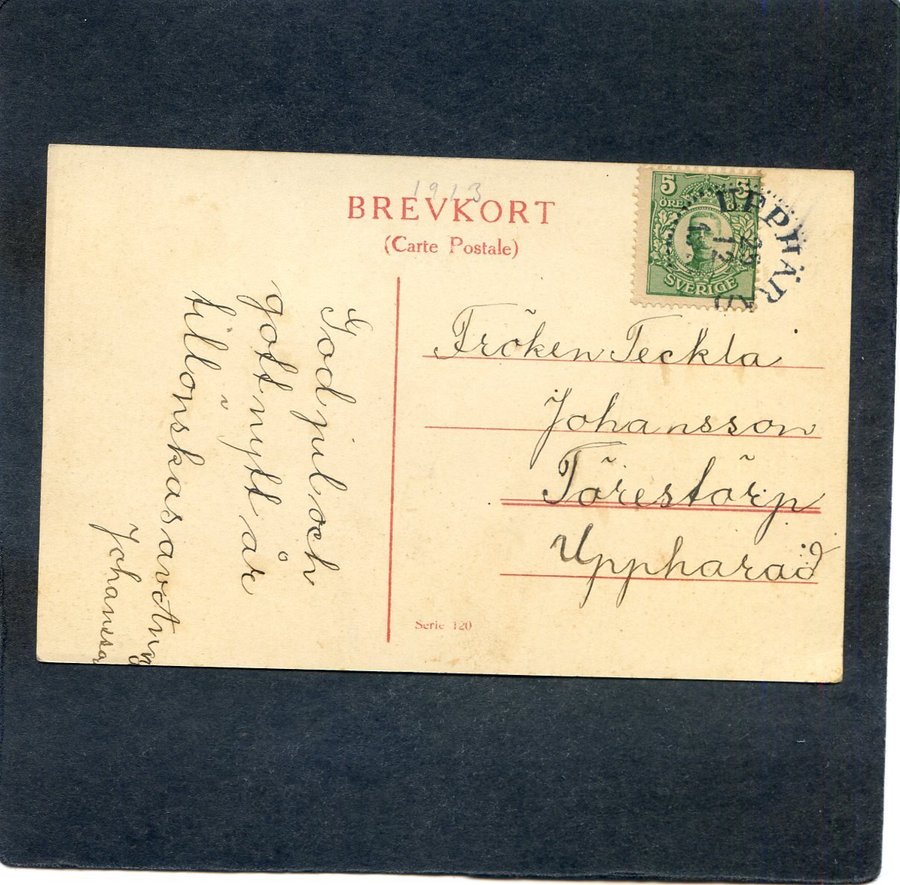 1913
BREVKORT
(Carte Postale)
5 5
ÖRE
SVERIGE
UPPHÄRAD
12
Fröken Teckla
Johansson
Torestorp
Uppharad
God jul och
gott nytt år
tillonskas av
Johansson
Serie 120